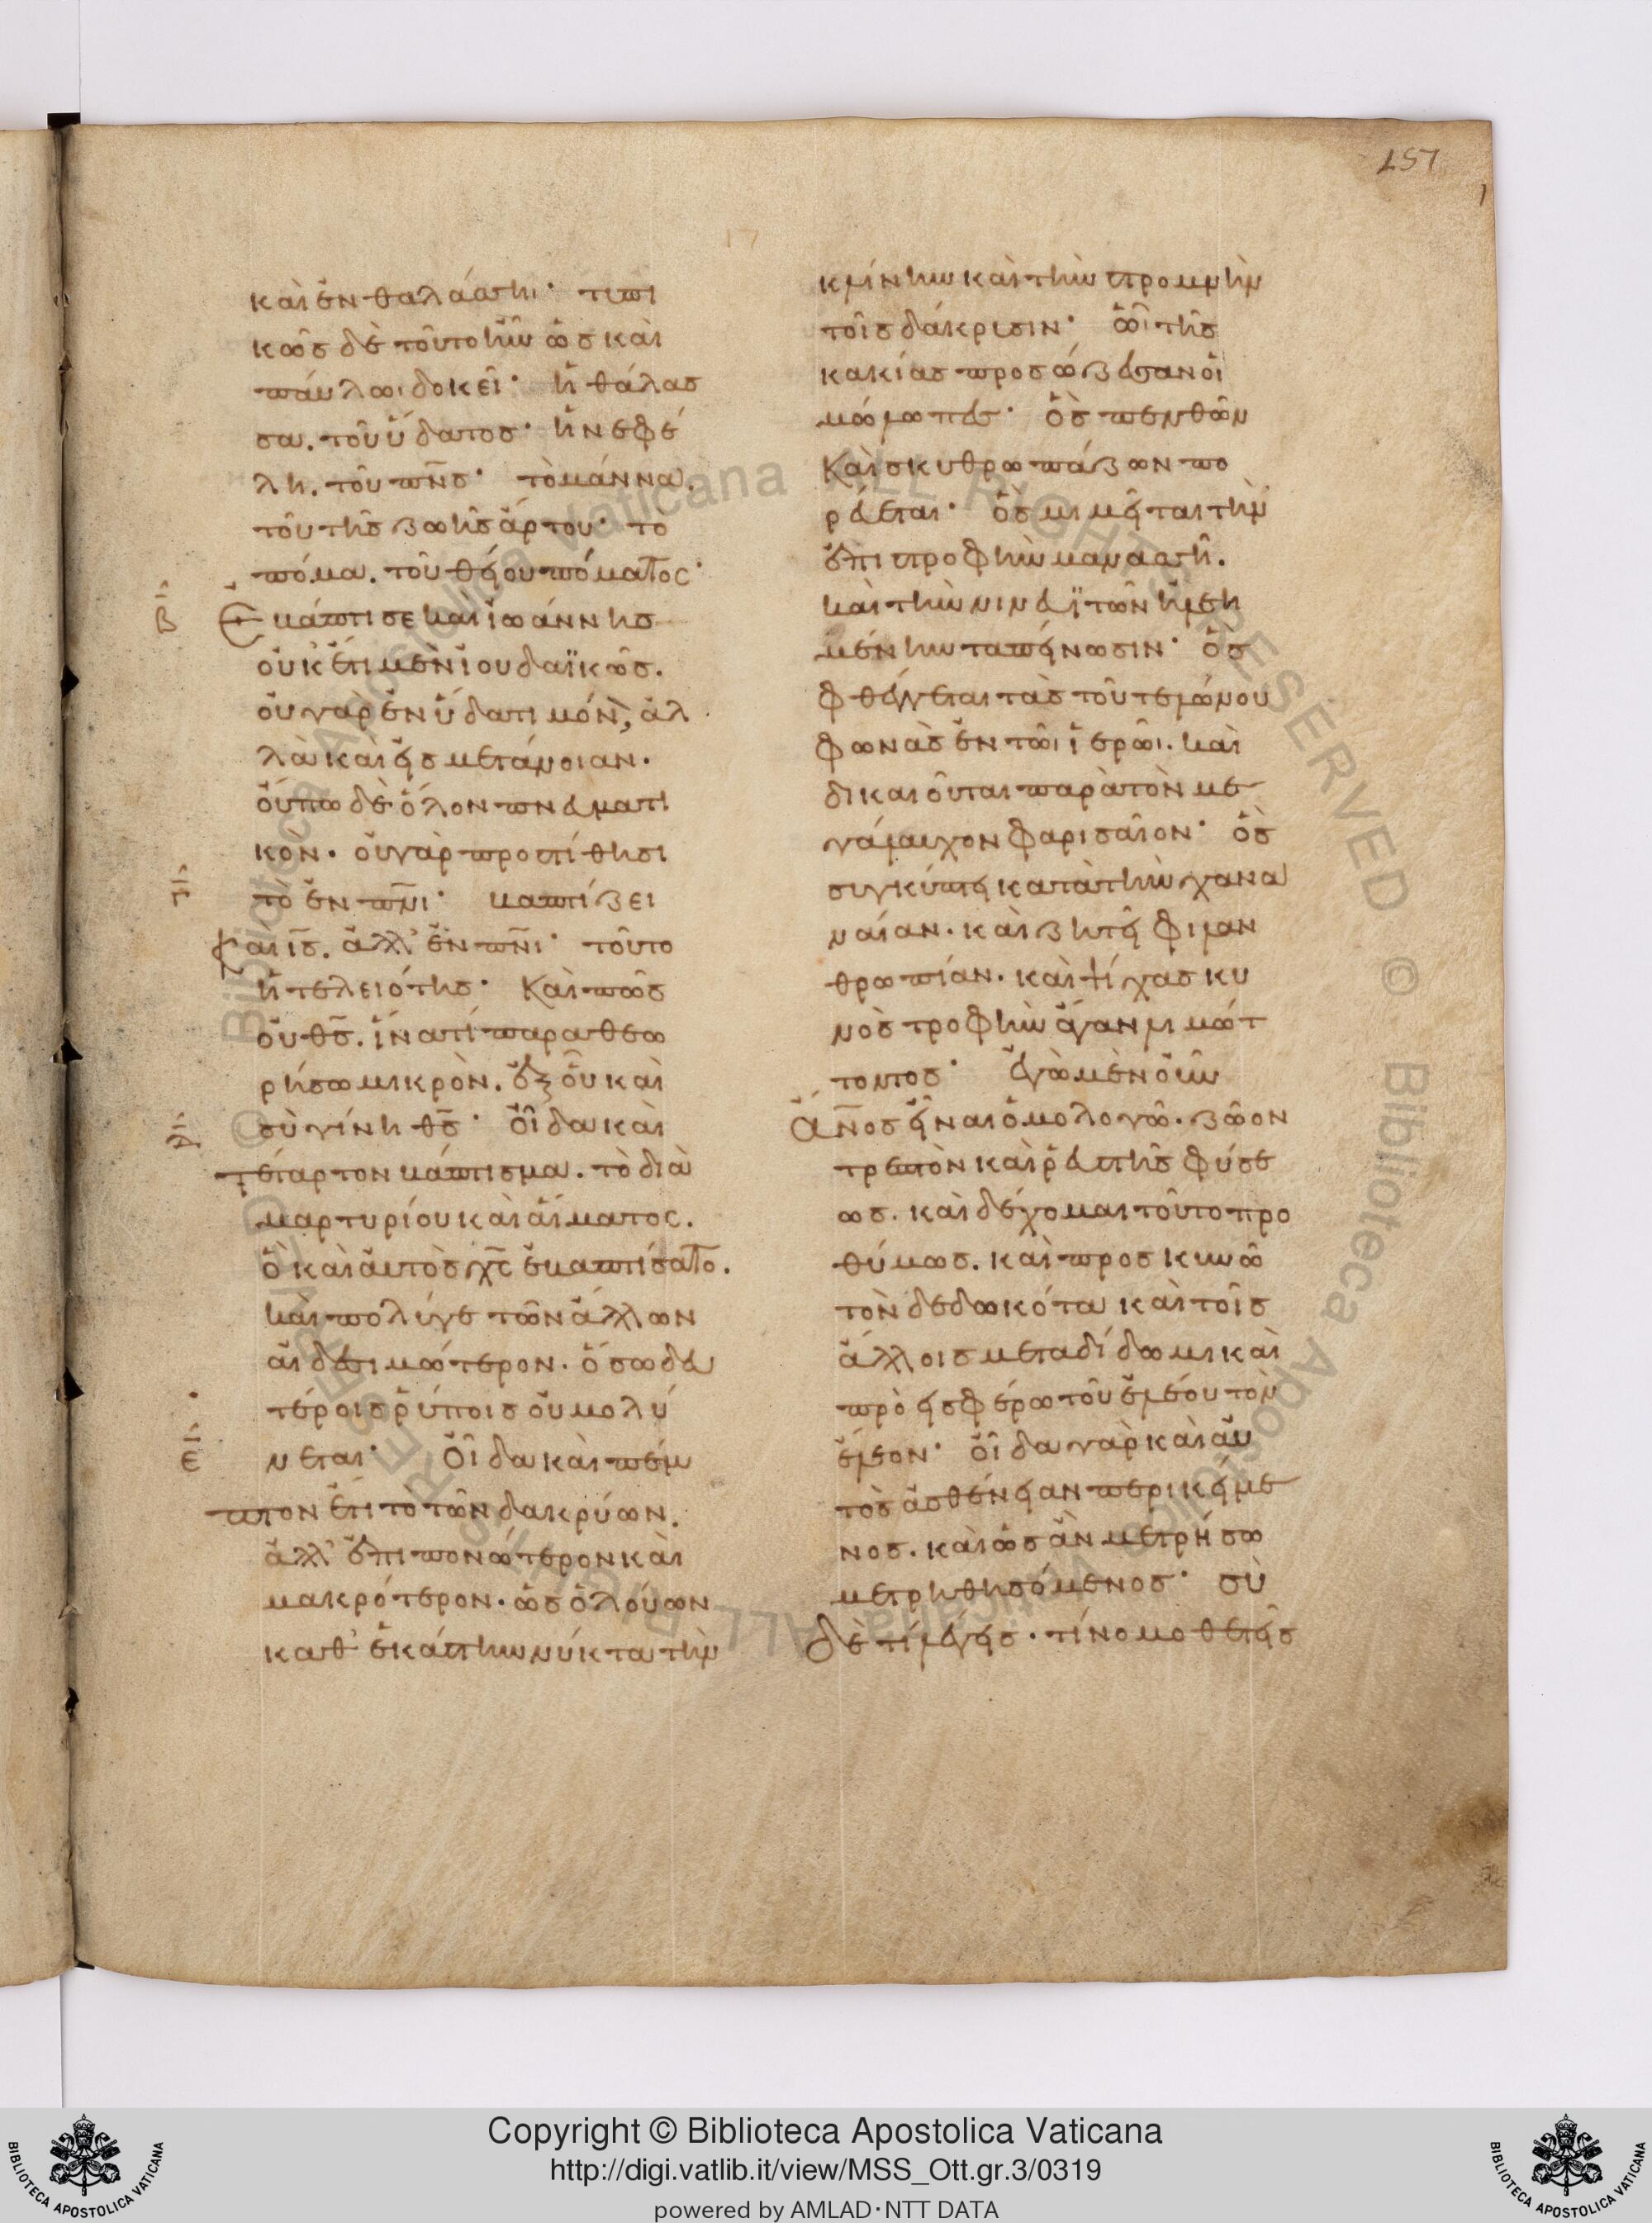 157
1
17
καὶ ἐν θαλάσσηι· τυπι
κῶς δὲ τοῦτο ἦν ὡς καὶ
παύλωι δοκεῖ· ἡ θάλασ
σα. τοῦ ὕδατος· ἡ νεφέ
λη. τοῦ πν̅ς· τὸ μάννα.
τοῦ τῆς ζωῆς ἄρτου· το
πόμα. τοῦ θείου πόματος·
β
Ἐβάπτισε καὶ ἰωάννης
οὐκέτι μὲν ἰουδαϊκῶς.
οὐ γὰρ ἐν ὕδατι μόν, ἀλ
λὰ καὶ εἰς μετάνοιαν.
οὔπω δὲ ὅλον πνευματι
κὸν. οὐ γὰρ προστίθησι
γ
τὸ ἐν πν̅ι· βαπτίζει
καὶ ις̅. ἀλλ' ἐν πν̅ι· τοῦτο
ἡ τελειότης· Καὶ πῶς
οὐ θς̅. ἵνά τι παραθεω
ρήσω μικρὸν. ἐξ οὗ καὶ
σὺ γίνη θς̅· Οἶδα καὶ
δ
τέταρτον βάπτισμα. τὸ διὰ
μαρτυρίου καὶ αἵματος.
ὃ καὶ αὐτὸς χς̅ ἐβαπτίσατο.
καὶ πολύ γε τῶν ἄλλων
αἰδεσιμώτερον. ὅσω δευ
τέροις ῥύποις οὐ μολύ
νεται· Οἶδα καὶ πέμ
ε
πτον ἔτι τὸ τῶν δακρύων.
ἀλλ' ἐπιπονώτερον καὶ
μακρότερον. ὡς ὁ λούων
καθ' ἑκάστην νύκτα τὴν
κλίνην καὶ τὴν στρομνὴν
τοῖς δάκρυσιν· ὧι τῆς
κακίας προσώζεσαν οἱ
μώλωπες· ὃς πενθῶν
Καὶ σκυθρωπάζων πο
ρεύεται· ὃς μιμεῖται τὴν
ἐπιστροφὴν μανασσῆ.
καὶ τὴν νινευϊτῶν ἠλεη
μένην ταπείνωσιν· ὃς
φθέγγεται τὰς τοῦ τελώνου
φωνὰς ἐν τῶι ἱερῶι. καὶ
δικαιοῦται παρὰ τὸν με
γάλαυχον φαρισαῖον· ὃς
συγκύπτει κατὰ τὴν χανα
ναίαν. καὶ ζητεῖ φιλαν
θρωπίαν. καὶ ψίχας κυ
νὸς τροφὴν ἄγαν λιμώτ
τοντος· Ἐγὼ μὲν οὖν
ἄν̅ος εἶναι ὁμολογῶ. ζῶον
τρεπτὸν καὶ ῥευστῆς φύσε
ως. καὶ δέχομαι τοῦτο προ
θύμως. καὶ προσκυνῶ
τὸν δεδωκότα καὶ τοῖς
ἄλλοις μεταδίδωμι καὶ
προεισφέρω τοῦ ἐλέου τὸν
ἔλεον· οἶδα γὰρ καὶ αὐ
τὸς ἀσθένειαν περικείμε
νος. καὶ ὡς ἂν μετρήσω
μετρηθησόμενος· σὺ
δὲ τί λέγεις. τί νομοθετεῖς
Copyright © Biblioteca Apostolica Vaticana
http://digi.vatlib.it/view/MSS_Ott.gr.3/0319
powered by AMLAD·NTT DATA
BIBLIOTECA APOSTOLICA VATICANA
BIBLIOTECA APOSTOLICA VATICANA